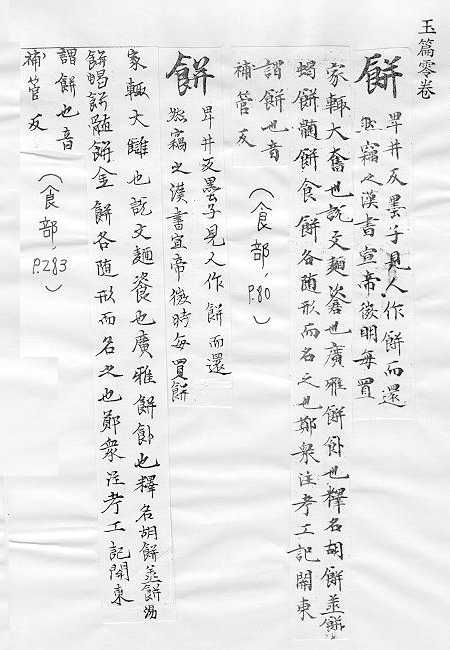 玉篇零卷
餅
卑井反墨子見人作餅而還
然竊之漢書宣帝微明每買
家輒大奮也説文麵餈也廣雅餅也釋名胡餅並餅
蝎餅髓餅食餅各随形而名之也鄭衆注考工記開東
謂餅也音
補管反
(食部, P.80)
餅
卑井反墨子見人作餅而還
然竊之漢書宣帝微時每買餅
家輒大雠也説文麵餈也廣雅餅也釋名胡餅並餅湯
餅蝎餅髓餅金餅各随形而名之也鄭衆注考工記開東
謂餅也音
補管反
(食部, P.283)